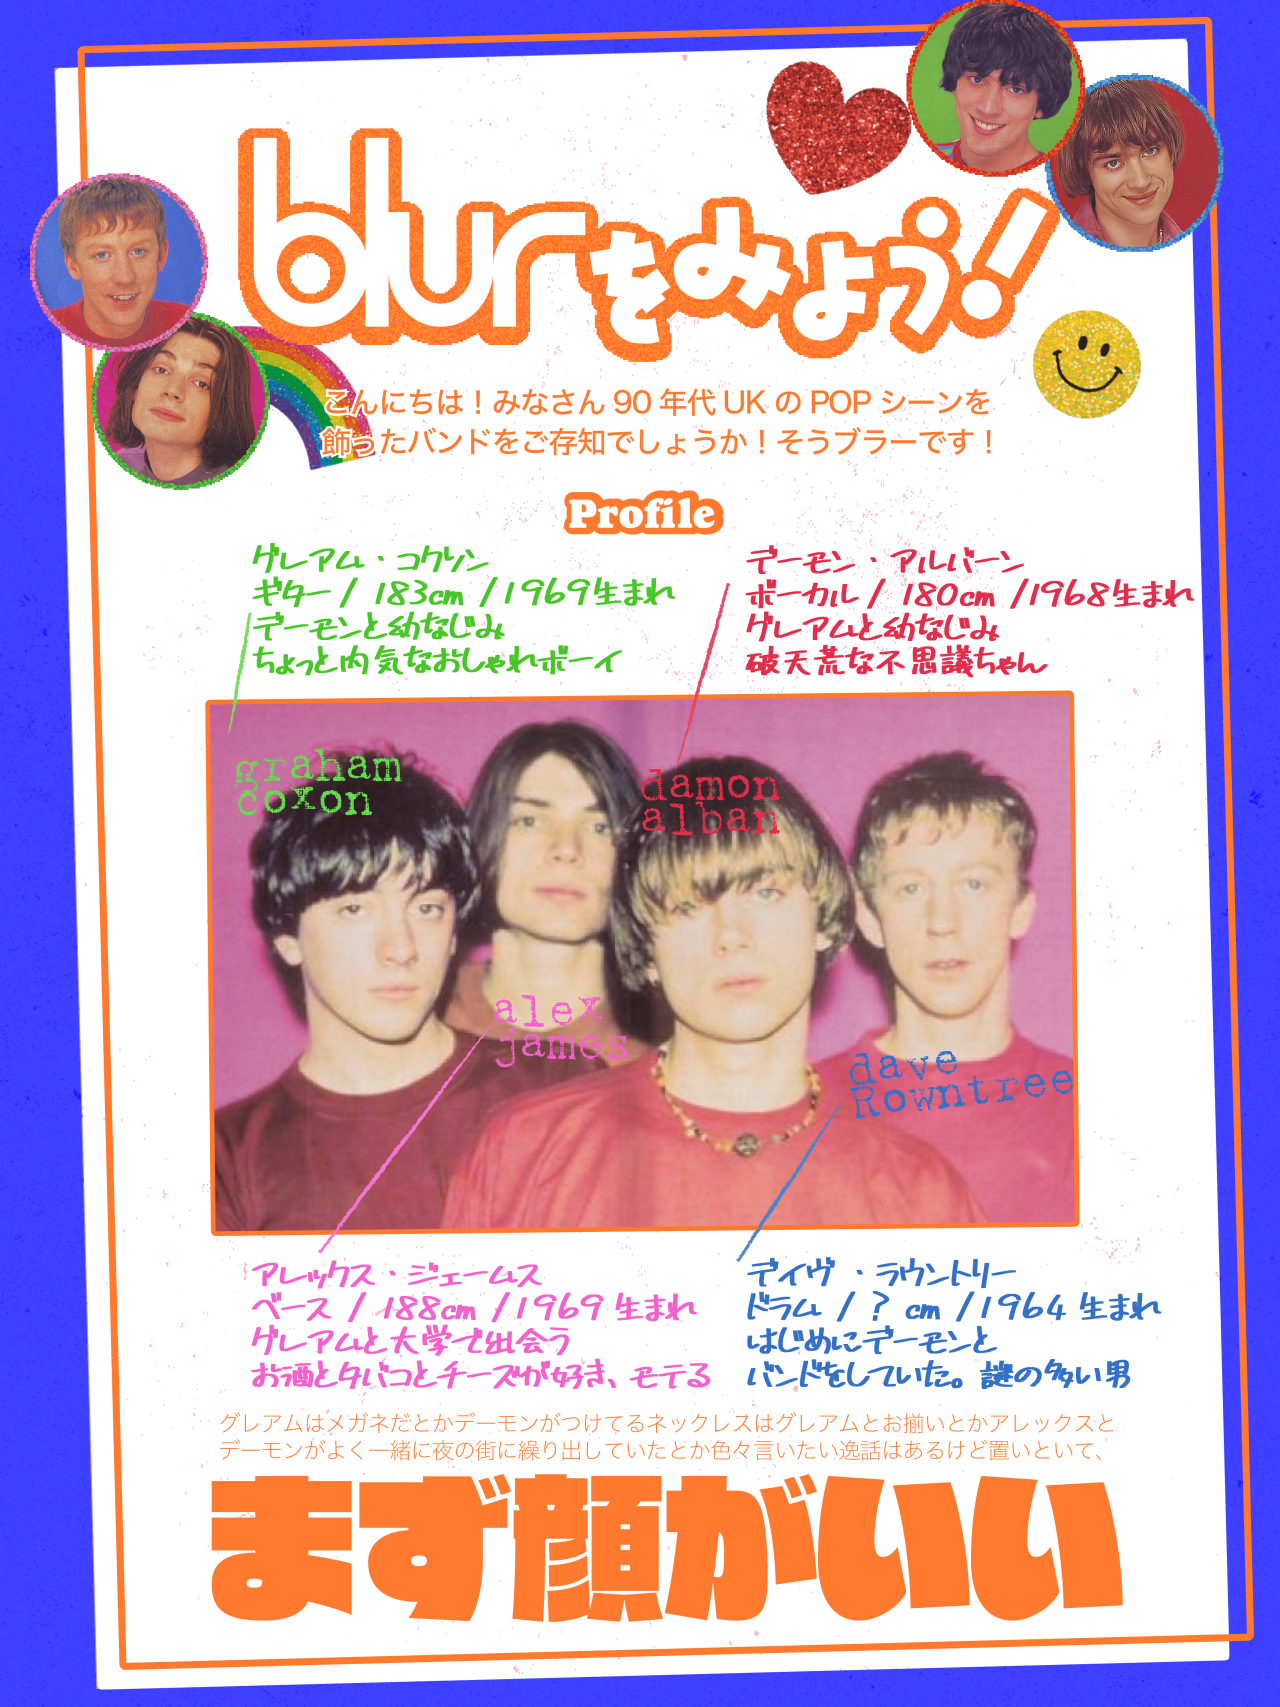 blurをみよう!
こんにちは！みなさん 90 年代 UK の POP シーンを
飾ったバンドをご存知でしょうか！そうブラーです！
Profile
グレアム・コクソン
ギター / 183cm /1969生まれ
デーモンと幼なじみ
ちょっと内気なおしゃれボーイ
デーモン・アルバーン
ボーカル / 180cm /1968生まれ
グレアムと幼なじみ
破天荒な不思議ちゃん
graham
coxon
damon
alban
alex
james
dave
Rowntree
アレックス・ジェームス
ベース / 188cm /1969 生まれ
グレアムと大学で出会う
お酒とタバコとチーズが好き、モテる
デイヴ・ラウントリー
ドラム / ? cm /1964 生まれ
はじめにデーモンと
バンドをしていた。謎の多い男
グレアムはメガネだとかデーモンがつけてるネックレスはグレアムとお揃いとかアレックスと
デーモンがよく一緒に夜の街に繰り出していたとか色々言いたい逸話はあるけど置いといて、
まず顔がいい